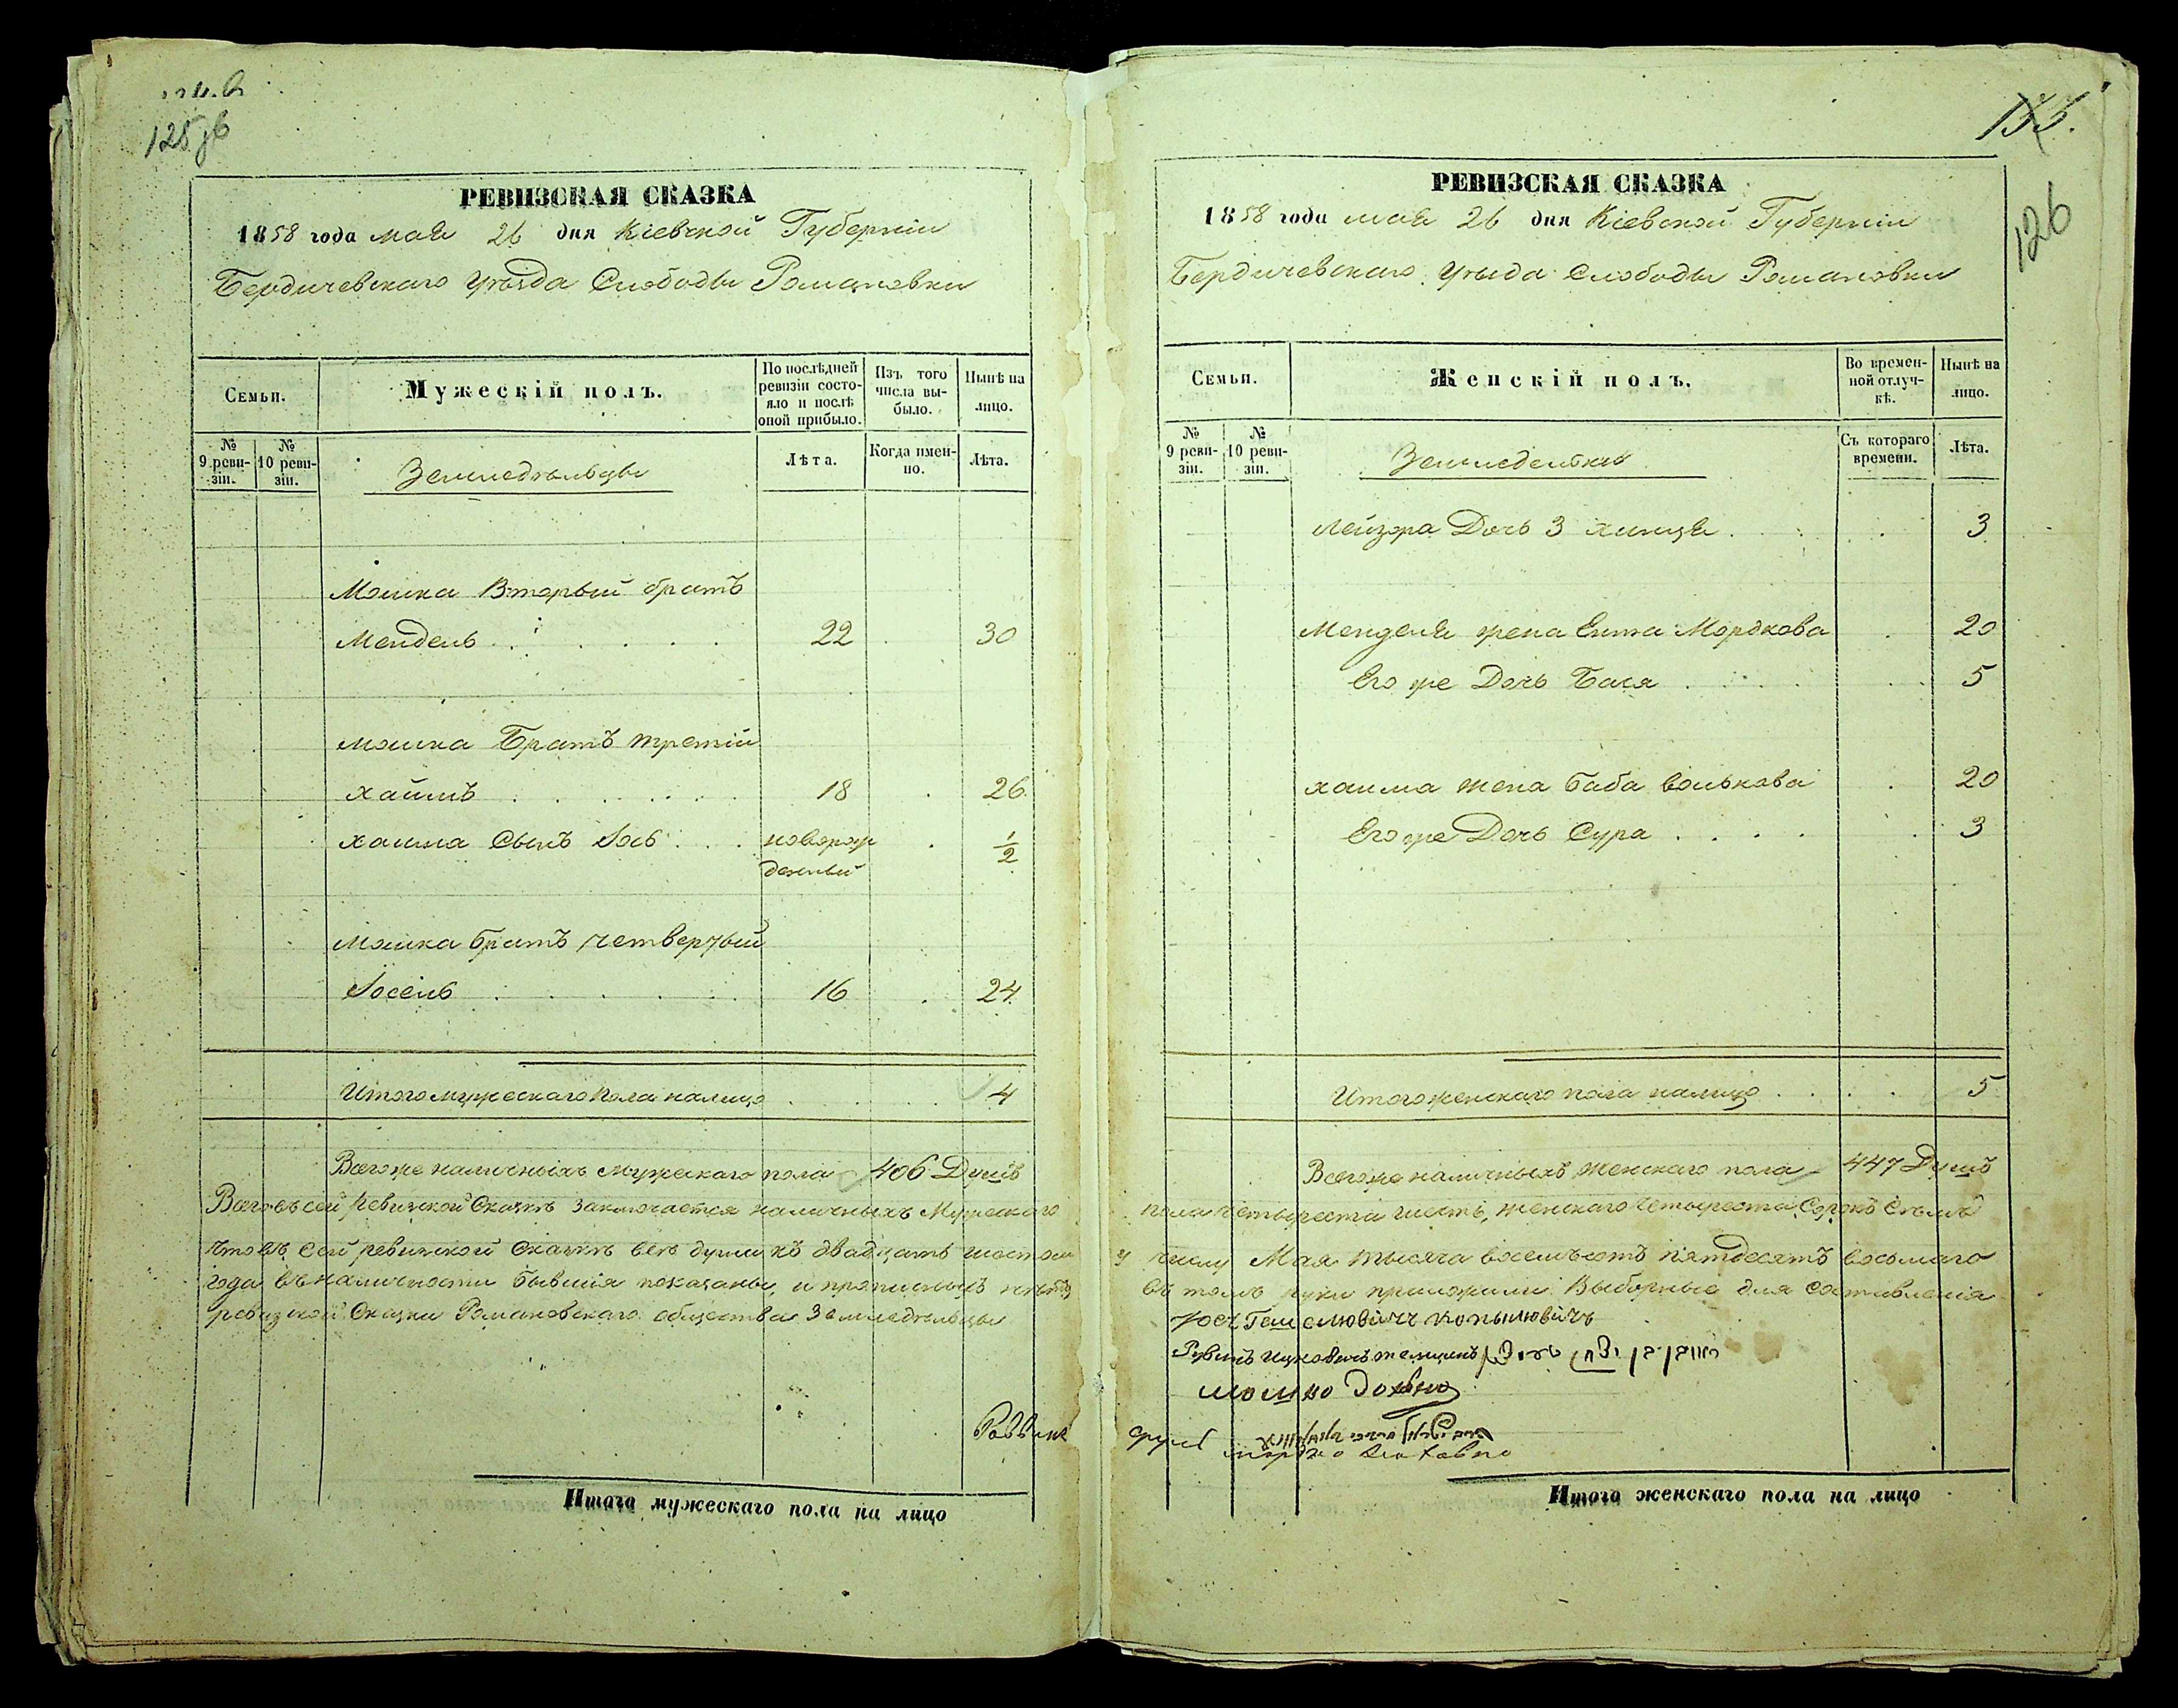 125 об
РЕВИЗСКАЯ СКАЗКА
1858 года мая 26 дня Кіевской Губерніи
Бердичевскаго уѣзда Слободы Романовки
Семьи.
Мужескій полъ.
По послѣдней ревизіи состояло и послѣ оной прибыло.
Изъ того числа выбыло.
Нынѣ на лицо.
№ 9 ревизіи.
№ 10 ревизіи.
Земледѣльцы
Лѣта.
Когда именно.
Лѣта.
Мошка Вторый братъ
Мендель 22 30
мошка Братъ третій
хаимъ 18 26
хаима Сынъ Іось новорожденный 1/2
Мошка братъ четвертый
Іосель 16 24
Итого мужескаго пола налицо 4
Всего же наличныхъ мужескаго пола 406 Душъ
Всего въ сей ревизской Сказкѣ заключается наличныхъ Мужескаго
что въ сей ревизской Сказкѣ всѣ души къ двадцать шестому
года въ наличности бывшія показаны, и прописныхъ нѣтъ
ревизской Сказки Романовскаго общества Земледѣльцы
Раввинъ
Итого мужескаго пола на лицо
135.
126
РЕВИЗСКАЯ СКАЗКА
1858 года мая 26 дня Кіевской Губерніи
Бердичевскаго уѣзда Слободы Романовки
Семьи.
Женскій полъ.
Во временной отлучкѣ.
Нынѣ на лицо.
№ 9 ревизіи.
№ 10 ревизіи.
Земледелки
Съ котораго времени.
Лѣта.
Лейзора Дочь 3 хинця 3
Менделя жена Ента Мордкова 20
Его же Дочь Бася 5
хаима жена баба Волькова 20
Его же Дочь Сура 3
Итого женскаго пола налицо 5
Всего же наличныхъ женскаго пола 447 Душъ
пола четыреста шесть, женскаго четыреста Сорокъ Семь
числу Мая тысяча восемьсотъ пятдесятъ восьмаго
въ томъ руки приложили Выборные для составленія
Итого женскаго пола на лицо